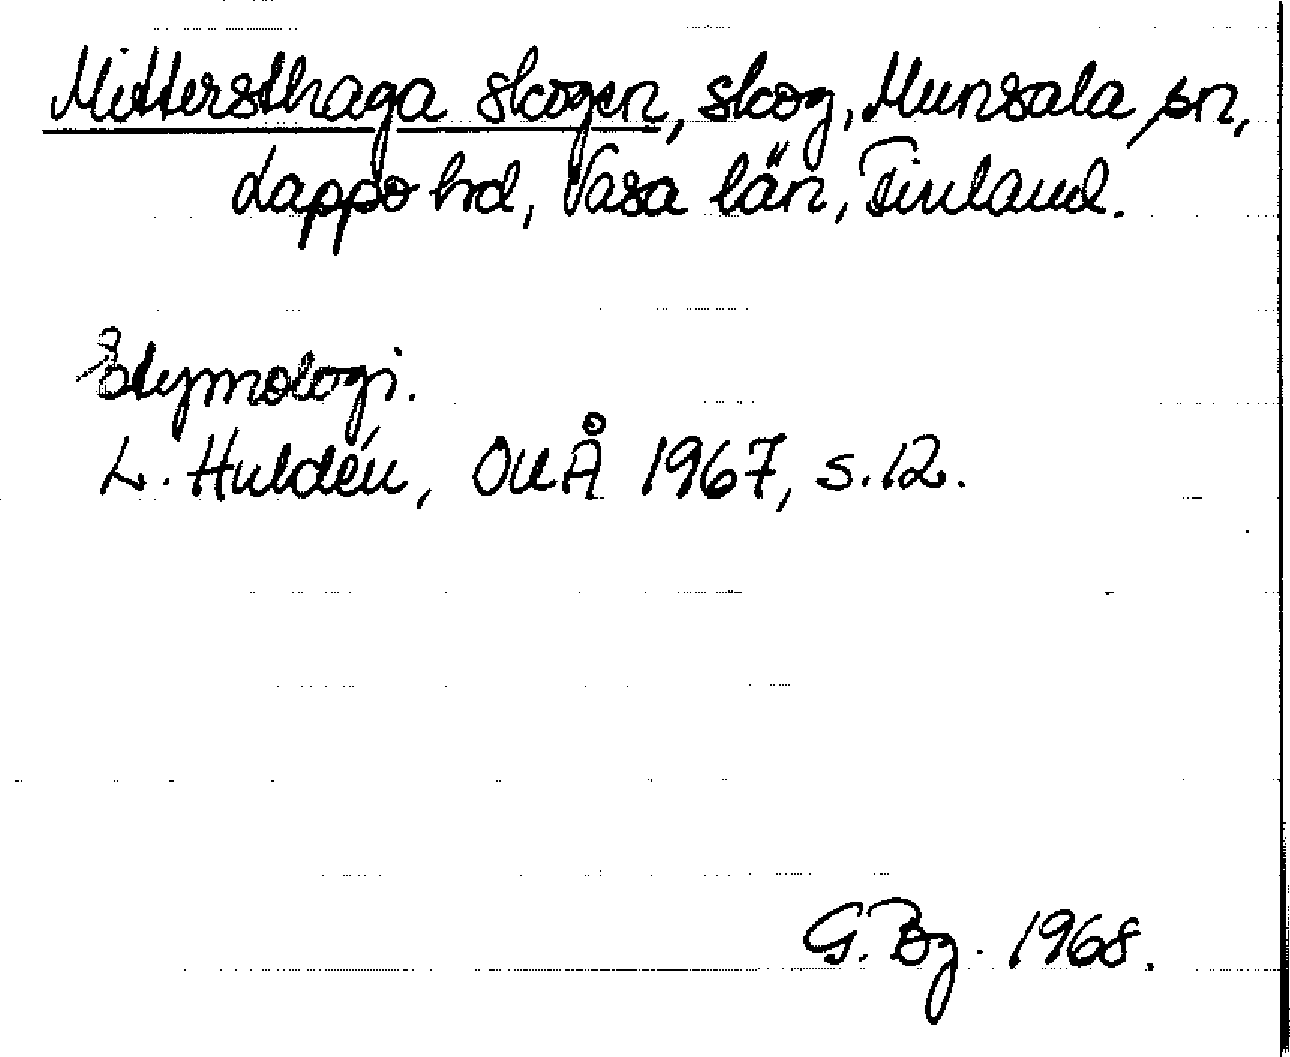 Mittersthaga skogen, skog, Munsala sn,
Lappo hd, Vasa län, Finland.
Etymologi.
L. Huldén, OUÅ 1967, s. 12.
G. Bg. 1968.